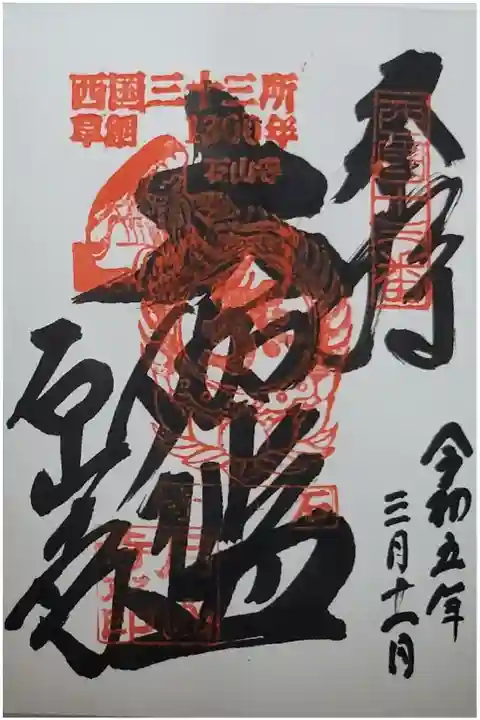 奉拝
西国十三番
西国三十三所
草創 1300年
石山寺
大伽藍
石山寺
令和五年
三月廿一日